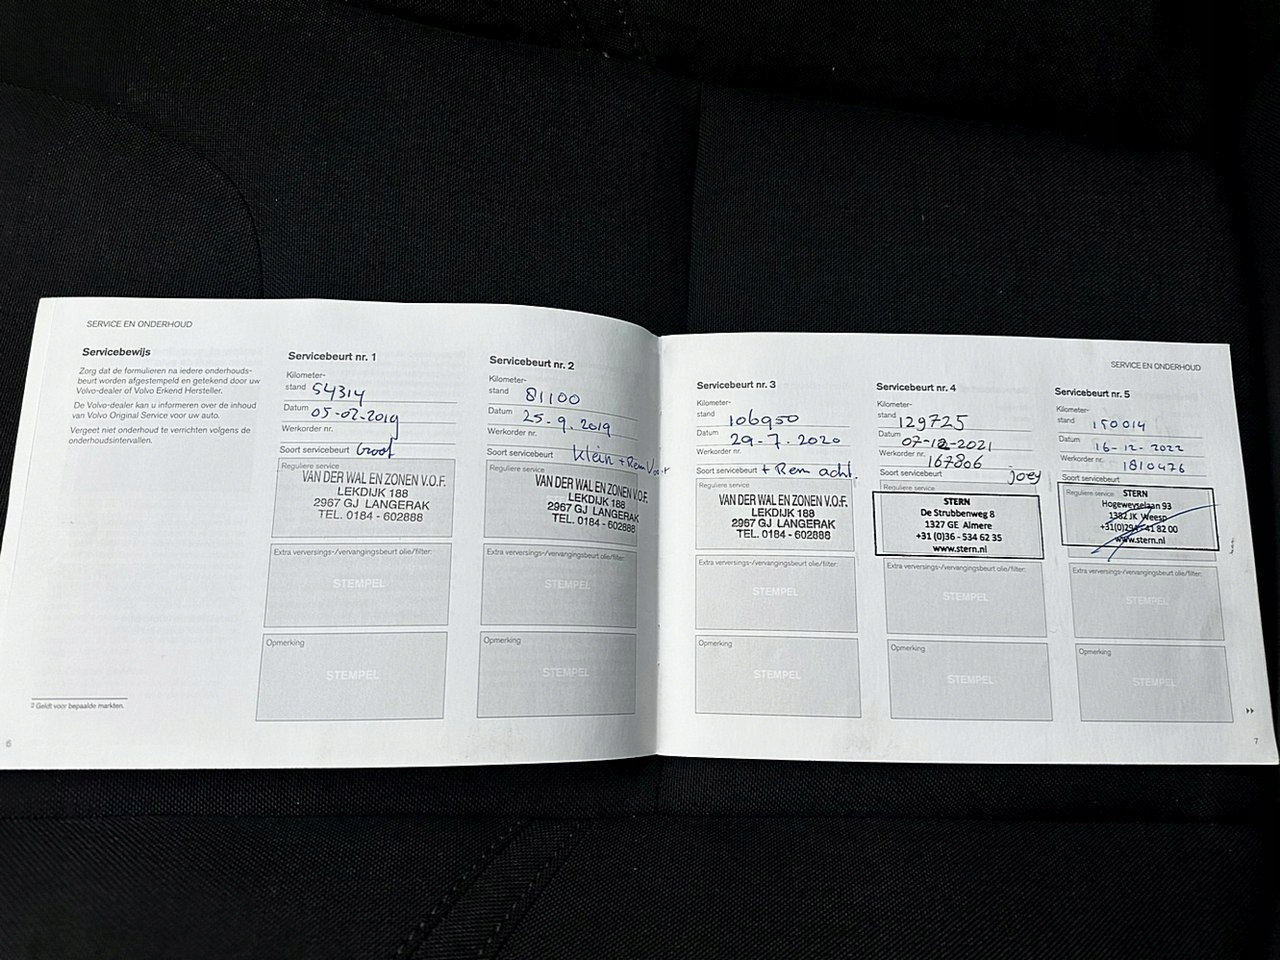 SERVICE EN ONDERHOUD
Servicebewijs
Zorg dat de formulieren na iedere onderhouds-
beurt worden afgestempeld en getekend door uw
Volvo-dealer of Volvo Erkend Hersteller.
De Volvo-dealer kan u informeren over de inhoud
van Volvo Original Service voor uw auto.
Vergeet niet onderhoud te verrichten volgens de
onderhoudsintervallen.
Geldt voor bepaalde markten.
6
Servicebeurt nr. 1
Kilometer-
stand 54314
Datum 05-02-2019
Werkorder nr.
Soort servicebeurt Groot
Reguliere service
VAN DER WAL EN ZONEN V.O.F.
LEKDIJK 188
2967 GJ LANGERAK
TEL. 0184 - 602888
Extra verversings-/vervangingsbeurt olie/filter:
STEMPEL
Opmerking
STEMPEL
Servicebeurt nr. 2
Kilometer-
stand 81100
Datum 25-9-2019
Werkorder nr.
Soort servicebeurt Klein + Rem Voor
Reguliere service
VAN DER WAL EN ZONEN V.O.F.
LEKDIJK 188
2967 GJ LANGERAK
TEL. 0184 - 602888
Extra verversings-/vervangingsbeurt olie/filter:
STEMPEL
Opmerking
STEMPEL
SERVICE EN ONDERHOUD
Servicebeurt nr. 3
Kilometer-
stand 106950
Datum 29-7-2020
Werkorder nr.
Soort servicebeurt + Rem acht.
Reguliere service
VAN DER WAL EN ZONEN V.O.F.
LEKDIJK 188
2967 GJ LANGERAK
TEL. 0184 - 602888
Extra verversings-/vervangingsbeurt olie/filter:
STEMPEL
Opmerking
STEMPEL
Servicebeurt nr. 4
Kilometer-
stand 129725
Datum 07-12-2021
Werkorder nr. 167806
Soort servicebeurt Joey
Reguliere service
STERN
De Strubbenweg 8
1327 GE Almere
+31 (0)36 - 534 62 35
www.stern.nl
Extra verversings-/vervangingsbeurt olie/filter:
STEMPEL
Opmerking
STEMPEL
Servicebeurt nr. 5
Kilometer-
stand 150014
Datum 16-12-2022
Werkorder nr. 1810476
Soort servicebeurt
Reguliere service
STERN
Hogeweyselaan 93
1382 JK Weesp
+31(0)294-41 82 00
www.stern.nl
Extra verversings-/vervangingsbeurt olie/filter:
STEMPEL
Opmerking
STEMPEL
7